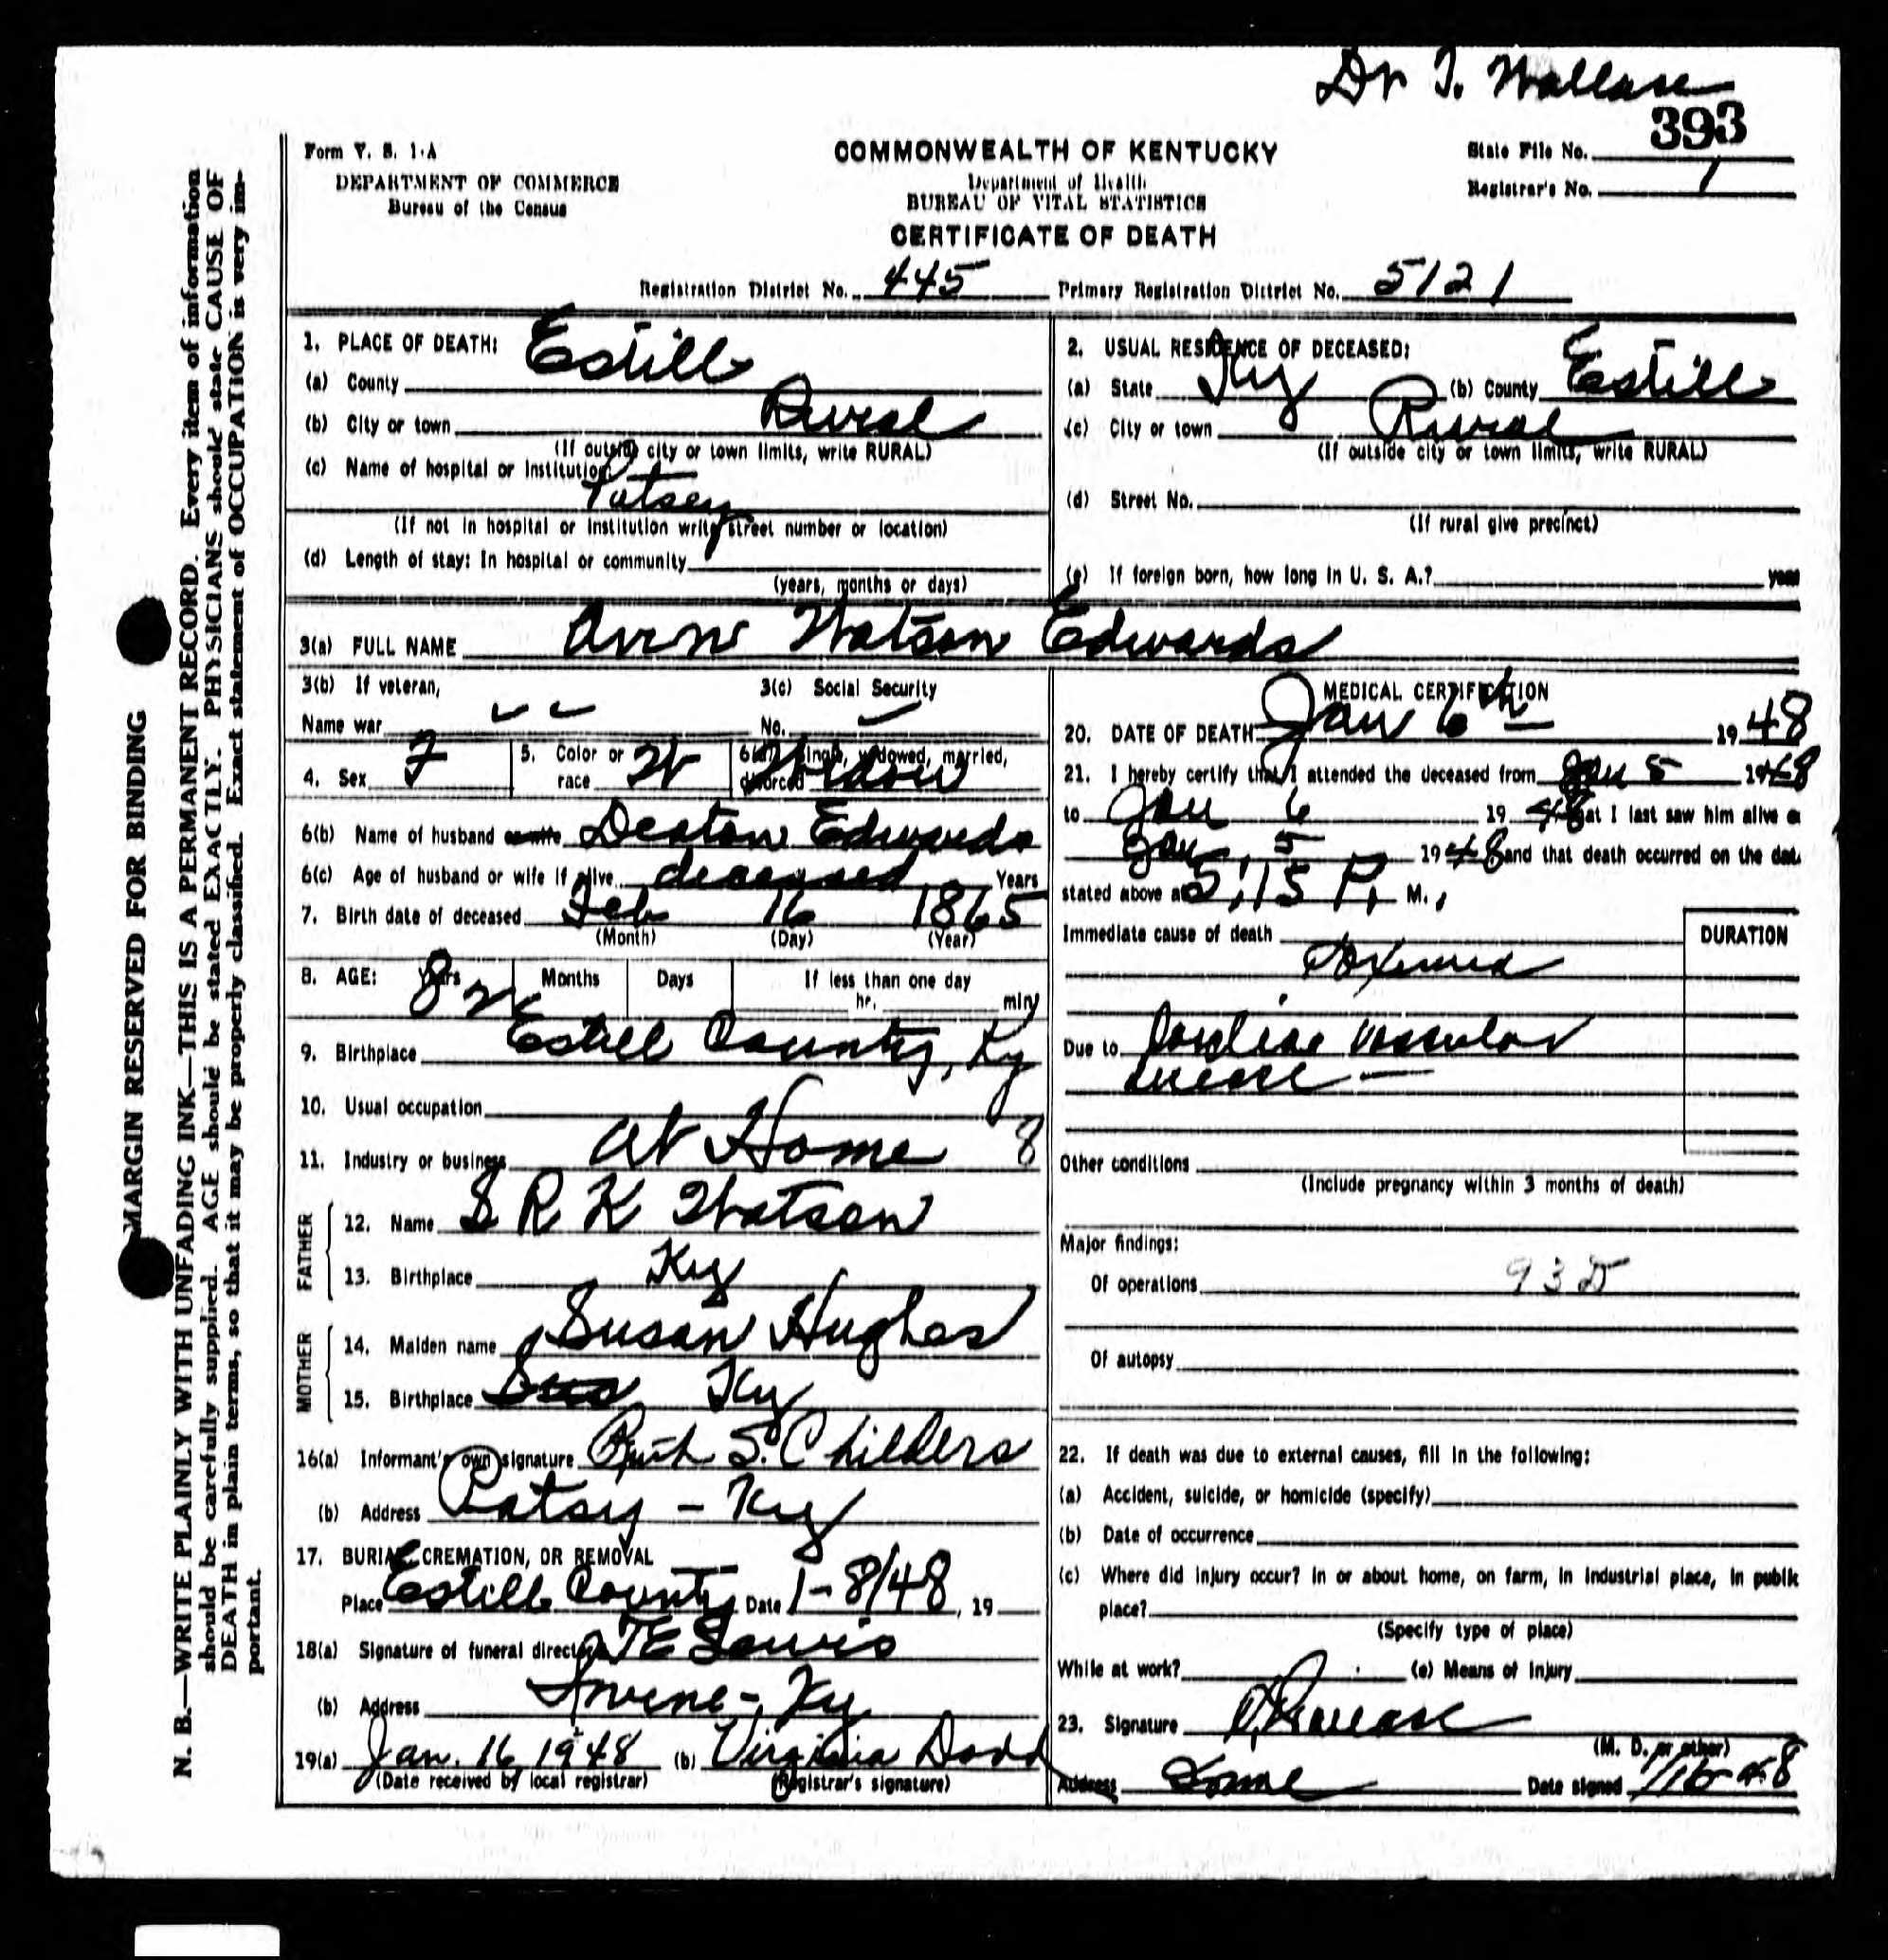 Dr T. Wallace
393
Form V. S. 1-A
DEPARTMENT OF COMMERCE
Bureau of the Census
COMMONWEALTH OF KENTUCKY
Department of Health
BUREAU OF VITAL STATISTICS
CERTIFICATE OF DEATH
State File No.
Registrar's No. 1
Registration District No. 445 Primary Registration District No. 5121
1. PLACE OF DEATH:
(a) County Estill
(b) City or town Rural
(If outside city or town limits, write RURAL)
(c) Name of hospital or institution
Patsey
(If not in hospital or institution write street number or location)
(d) Length of stay: In hospital or community
(years, months or days)
2. USUAL RESIDENCE OF DECEASED:
(a) State Ky (b) County Estill
(c) City or town Rural
(If outside city or town limits, write RURAL)
(d) Street No.
(If rural give precinct)
(e) If foreign born, how long in U. S. A.? years
3(a) FULL NAME Ann Watson Edwards
3(b) If veteran,
Name war
3(c) Social Security
No.
4. Sex F
5. Color or race W
6(a) Single, widowed, married, divorced Widow
6(b) Name of husband or wife Deaton Edwards
6(c) Age of husband or wife if alive deceased Years
7. Birth date of deceased Feb 16 1865
(Month) (Day) (Year)
8. AGE: Years Months Days If less than one day
hr. min
9. Birthplace Estill County, Ky
10. Usual occupation
11. Industry or business at Home 8
FATHER
12. Name S R K Watson
13. Birthplace Ky
MOTHER
14. Maiden name Susan Hughes
15. Birthplace Ky
16(a) Informant's own signature Ruth S. Childers
(b) Address Patsy - Ky
17. BURIAL, CREMATION, OR REMOVAL
Place Estill County Date 1-8/48, 19
18(a) Signature of funeral director TE Lewis
(b) Address Irvine - Ky
19(a) Jan. 16, 1948 (b) Virginia Dodd
(Date received by local registrar) (Registrar's signature)
MEDICAL CERTIFICATION
20. DATE OF DEATH Jan 6th 1948
21. I hereby certify that I attended the deceased from Jan 5 1948
to Jan 6 1948 that I last saw him alive on
Jan, 5 1948 and that death occurred on the date
stated above at 5:15 P. M.,
Immediate cause of death DURATION
Toxemia
Due to Cardiac vascular
disease
Other conditions
(Include pregnancy within 3 months of death)
Major findings:
Of operations 93D
Of autopsy
22. If death was due to external causes, fill in the following:
(a) Accident, suicide, or homicide (specify)
(b) Date of occurrence
(c) Where did injury occur? In or about home, on farm, in industrial place, in public
place?
(Specify type of place)
While at work? (e) Means of Injury
23. Signature
(M. D. or other)
Address Irvine Date signed 1/16-48
MARGIN RESERVED FOR BINDING
N. B.—WRITE PLAINLY WITH UNFADING INK—THIS IS A PERMANENT RECORD. Every item of information
should be carefully supplied. AGE should be stated EXACTLY. PHYSICIANS should state CAUSE OF
DEATH in plain terms, so that it may be properly classified. Exact statement of OCCUPATION is very im-
portant.